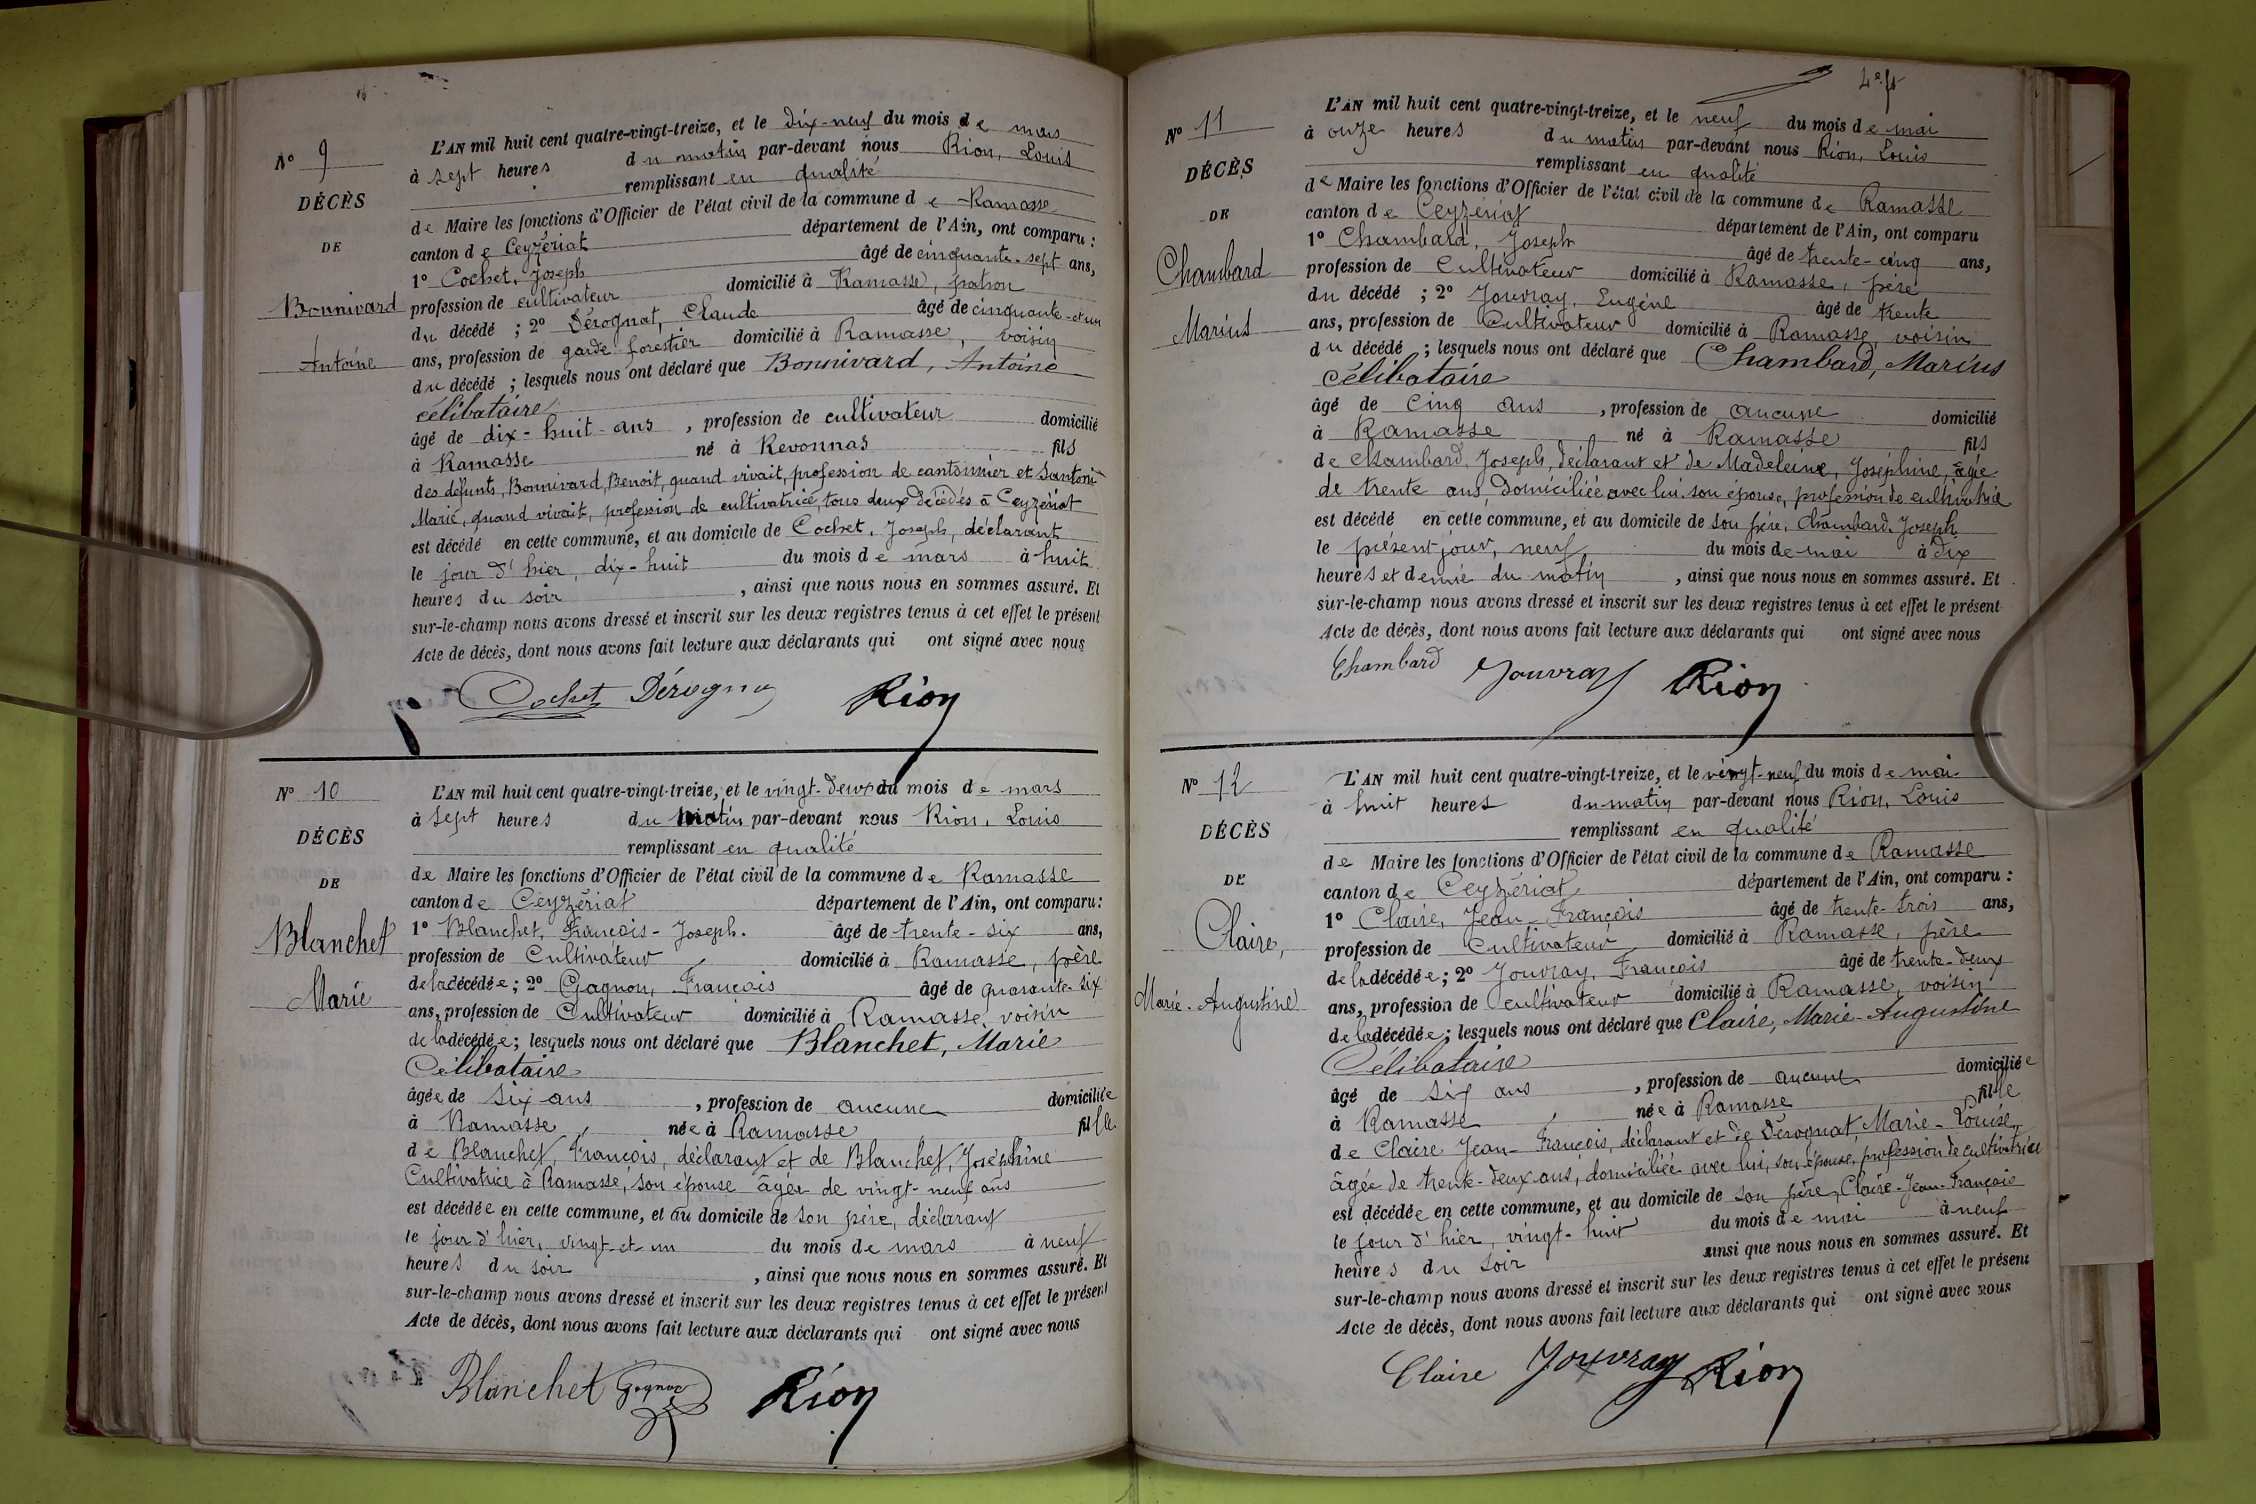 N° 9
DÉCÈS
DE
Bonnivard
Antoine
L'AN mil huit cent quatre-vingt-treize, et le dix-neuf du mois de mars
à sept heures du matin par-devant nous Rion, Louis
remplissant en qualité
de Maire les fonctions d'Officier de l'état civil de la commune de Ramasse
canton de Ceyzériat département de l'Ain, ont comparu :
1° Cochet, Joseph âgé de cinquante-sept ans,
profession de cultivateur domicilié à Ramasse, patron
du décédé ; 2° Dérognat, Claude âgé de cinquante-et un
ans, profession de garde forestier domicilié à Ramasse, voisin
du décédé ; lesquels nous ont déclaré que Bonnivard, Antoine
célibataire
âgé de dix-huit-ans, profession de cultivateur domicilié
à Ramasse né à Revonnas fils
des défunts, Bonnivard, Benoit, quand vivait, profession de cantonnier et Santoni
Marie, quand vivait, profession de cultivatrice, tous deux décédés à Ceyzériat
est décédé en cette commune, et au domicile de Cochet, Joseph, déclarant
le jour d'hier, dix-huit du mois de mars à huit
heures du soir, ainsi que nous nous en sommes assuré. Et
sur-le-champ nous avons dressé et inscrit sur les deux registres tenus à cet effet le présent
Acte de décès, dont nous avons fait lecture aux déclarants qui ont signé avec nous
Cochet Dérogna Rion
N° 10
DÉCÈS
DE
Blanchet
Marie
L'AN mil huit cent quatre-vingt-treize, et le vingt-deux du mois de mars
à sept heures du matin par-devant nous Rion, Louis
remplissant en qualité
de Maire les fonctions d'Officier de l'état civil de la commune de Ramasse
canton de Ceyzériat département de l'Ain, ont comparu :
1° Blanchet, François-Joseph. âgé de trente-six ans,
profession de Cultivateur domicilié à Ramasse, père
de la décédée ; 2° Gagnon, François âgé de quarante-six
ans, profession de Cultivateur domicilié à Ramasse, voisin
de la décédée ; lesquels nous ont déclaré que Blanchet, Marie
Célibataire
âgée de six ans, profession de aucune domiciliée
à Ramasse, née à Ramasse fille
de Blanchet, François, déclarant et de Blanchet, Joséphine
Cultivatrice à Ramasse, son épouse âgée de vingt-neuf ans
est décédée en cette commune, et au domicile de son père, déclarant
le jour d'hier, vingt-et-un du mois de mars à neuf
heures du soir, ainsi que nous nous en sommes assuré. Et
sur-le-champ nous avons dressé et inscrit sur les deux registres tenus à cet effet le présent
Acte de décès, dont nous avons fait lecture aux déclarants qui ont signé avec nous
Blanchet Gagnon Rion
4e ft
N° 11
DÉCÈS
DE
Chambard
Marius
L'AN mil huit cent quatre-vingt-treize, et le neuf du mois de mai
à onze heures du matin par-devant nous Rion, Louis
remplissant en qualité
de Maire les fonctions d'Officier de l'état civil de la commune de Ramasse
canton de Ceyzériat département de l'Ain, ont comparu
1° Chambard, Joseph âgé de trente-cinq ans,
profession de Cultivateur domicilié à Ramasse, père
du décédé ; 2° Jouvray, Eugène âgé de trente
ans, profession de Cultivateur domicilié à Ramasse, voisin
du décédé ; lesquels nous ont déclaré que Chambard, Marius
célibataire
âgé de cinq ans, profession de aucune domicilié
à Ramasse né à Ramasse fils
de Chambard, Joseph, déclarant et de Madeleine, Joséphine, âgée
de trente ans, domiciliée avec lui, son épouse, profession de cultivatrice
est décédé en cette commune, et au domicile de son père, Chambard, Joseph
le présent jour, neuf, du mois de mai à dix
heures et demie du matin, ainsi que nous nous en sommes assuré. Et
sur-le-champ nous avons dressé et inscrit sur les deux registres tenus à cet effet le présent
Acte de décès, dont nous avons fait lecture aux déclarants qui ont signé avec nous
Chambard Jouvray Rion
N° 12
DÉCÈS
DE
Claire,
Marie-Augustine
L'AN mil huit cent quatre-vingt-treize, et le vingt-neuf du mois de mai
à huit heures du matin par-devant nous Rion, Louis
remplissant en qualité
de Maire les fonctions d'Officier de l'état civil de la commune de Ramasse
canton de Ceyzériat département de l'Ain, ont comparu :
1° Claire, Jean-François âgé de trente-trois ans,
profession de Cultivateur domicilié à Ramasse, père
de la décédée ; 2° Jouvray, François âgé de trente-deux
ans, profession de cultivateur domicilié à Ramasse, voisin
de la décédée ; lesquels nous ont déclaré que Claire, Marie-Augustine
Célibataire
âgé de six ans, profession de aucune domiciliée
à Ramasse, née à Ramasse fille
de Claire Jean-François, déclarant et de Dérognat, Marie-Louise,
âgée de trente-deux ans, domiciliée avec lui, son épouse, profession de cultivatrice
est décédée en cette commune, et au domicile de son père, Claire-Jean-François
le jour d'hier, vingt-huit du mois de mai à neuf
heures du soir ainsi que nous nous en sommes assuré. Et
sur-le-champ nous avons dressé et inscrit sur les deux registres tenus à cet effet le présent
Acte de décès, dont nous avons fait lecture aux déclarants qui ont signé avec nous
Claire Jouvray Rion